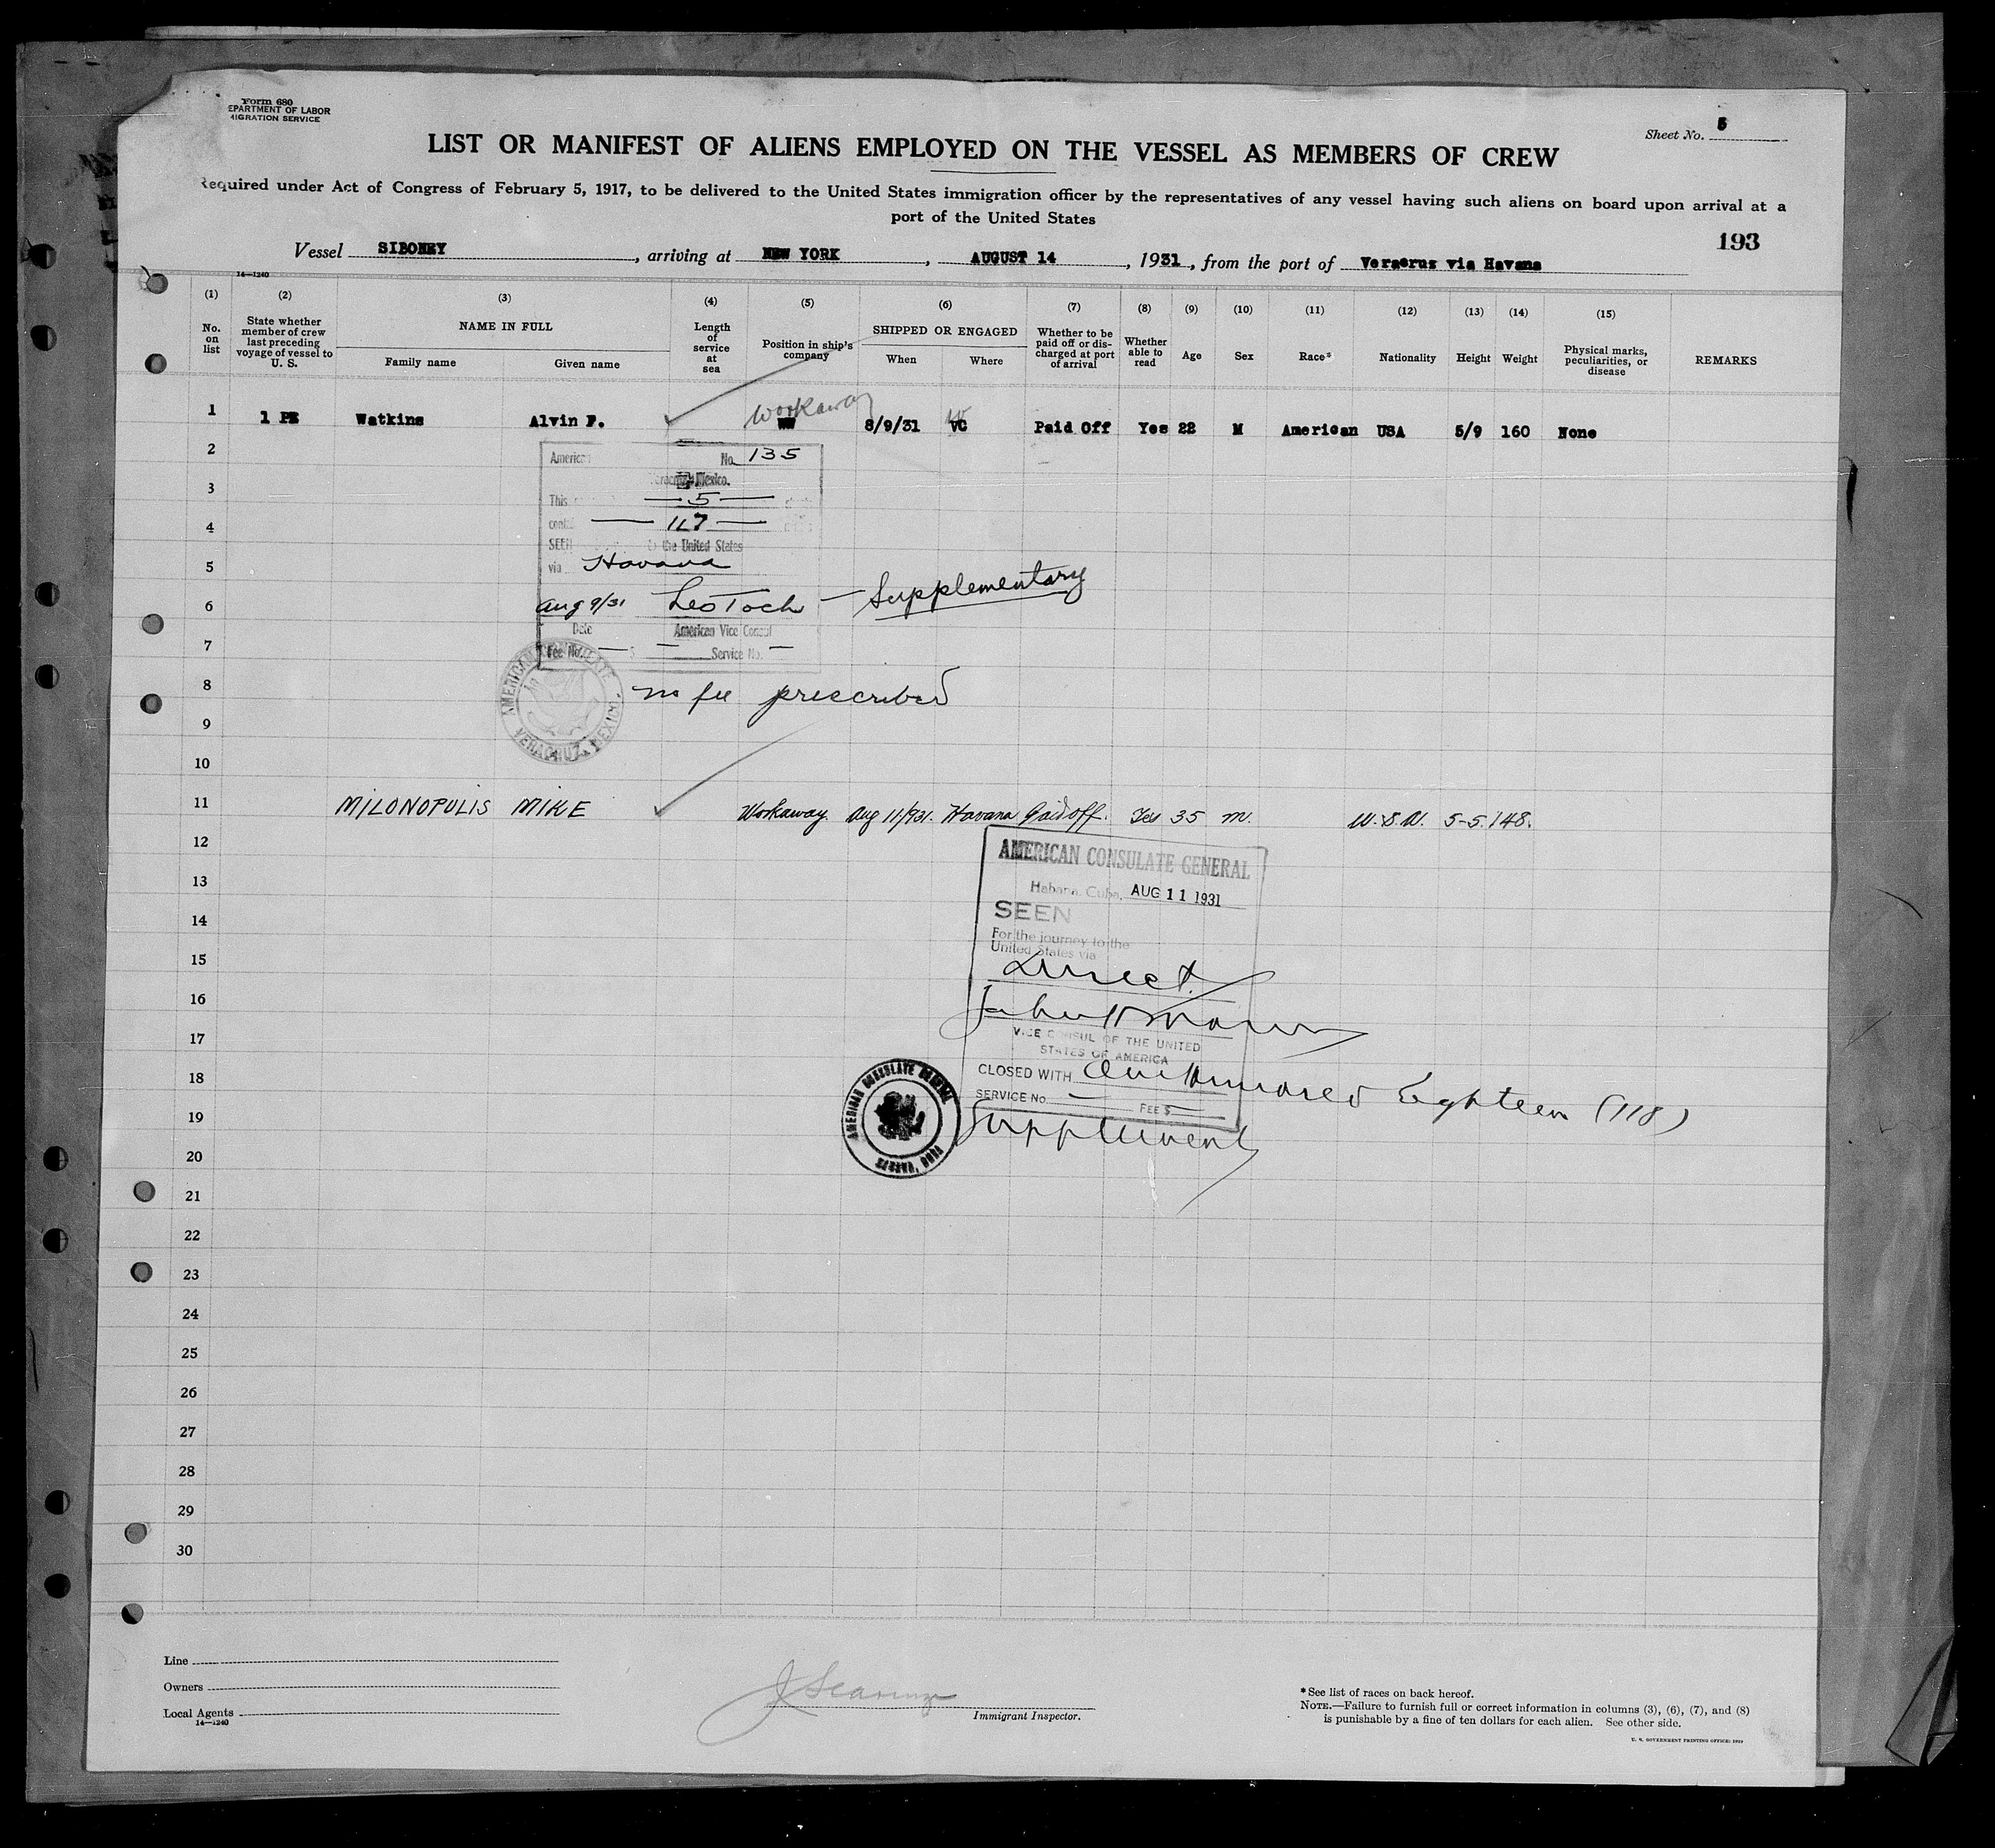 Form 680
EPARTMENT OF LABOR
MIGRATION SERVICE
Sheet No. 5
LIST OR MANIFEST OF ALIENS EMPLOYED ON THE VESSEL AS MEMBERS OF CREW
Required under Act of Congress of February 5, 1917, to be delivered to the United States immigration officer by the representatives of any vessel having such aliens on board upon arrival at a
port of the United States
193
Vessel SIBONEY, arriving at NEW YORK, AUGUST 14, 1931, from the port of Veracruz via Havana
14—1240
(1) (2) (3) (4) (5) (6) (7) (8) (9) (10) (11) (12) (13) (14) (15)
No. on list
State whether member of crew last preceding voyage of vessel to U. S.
NAME IN FULL
Family name Given name
Length of service at sea
Position in ship's company
SHIPPED OR ENGAGED
When Where
Whether to be paid off or discharged at port of arrival
Whether able to read
Age Sex Race* Nationality Height Weight
Physical marks, peculiarities, or disease
REMARKS
Workaway
1 1 PE Watkins Alvin F. WW 8/9/31 VC Paid Off Yes 22 M American USA 5/9 160 None
2
American No. 135
3
Veracruz, Mexico.
This — 5 —
4
— 117 —
SEEN the United States
5
via Havana
6
Aug 9/31 Leo Toch — Supplementary
Date American Vice Consul
7
Fee No. — $ — Service No. —
AMERICAN CONSULATE
VERACRUZ, MEXICO
8
no fee prescribed
9
10
11 MILONOPULIS MIKE Workaway Aug 11/931. Havana Paid off. Yes 35 m. U.S.A. 5-5. 148.
12
AMERICAN CONSULATE GENERAL
13
Habana, Cuba, AUG 11 1931
14
SEEN
For the journey to the
15
United States via
Direct.
16
17
VICE CONSUL OF THE UNITED
STATES OF AMERICA
18
CLOSED WITH One Hundred Eighteen (118)
SERVICE No. — FEE $ —
19
Supplement
AMERICAN CONSULATE GENERAL
HABANA, CUBA
20
21
22
23
24
25
26
27
28
29
30
Line
Owners
Local Agents
14—1240
Immigrant Inspector.
*See list of races on back hereof.
NOTE.—Failure to furnish full or correct information in columns (3), (6), (7), and (8)
is punishable by a fine of ten dollars for each alien. See other side.
U. S. GOVERNMENT PRINTING OFFICE: 1929